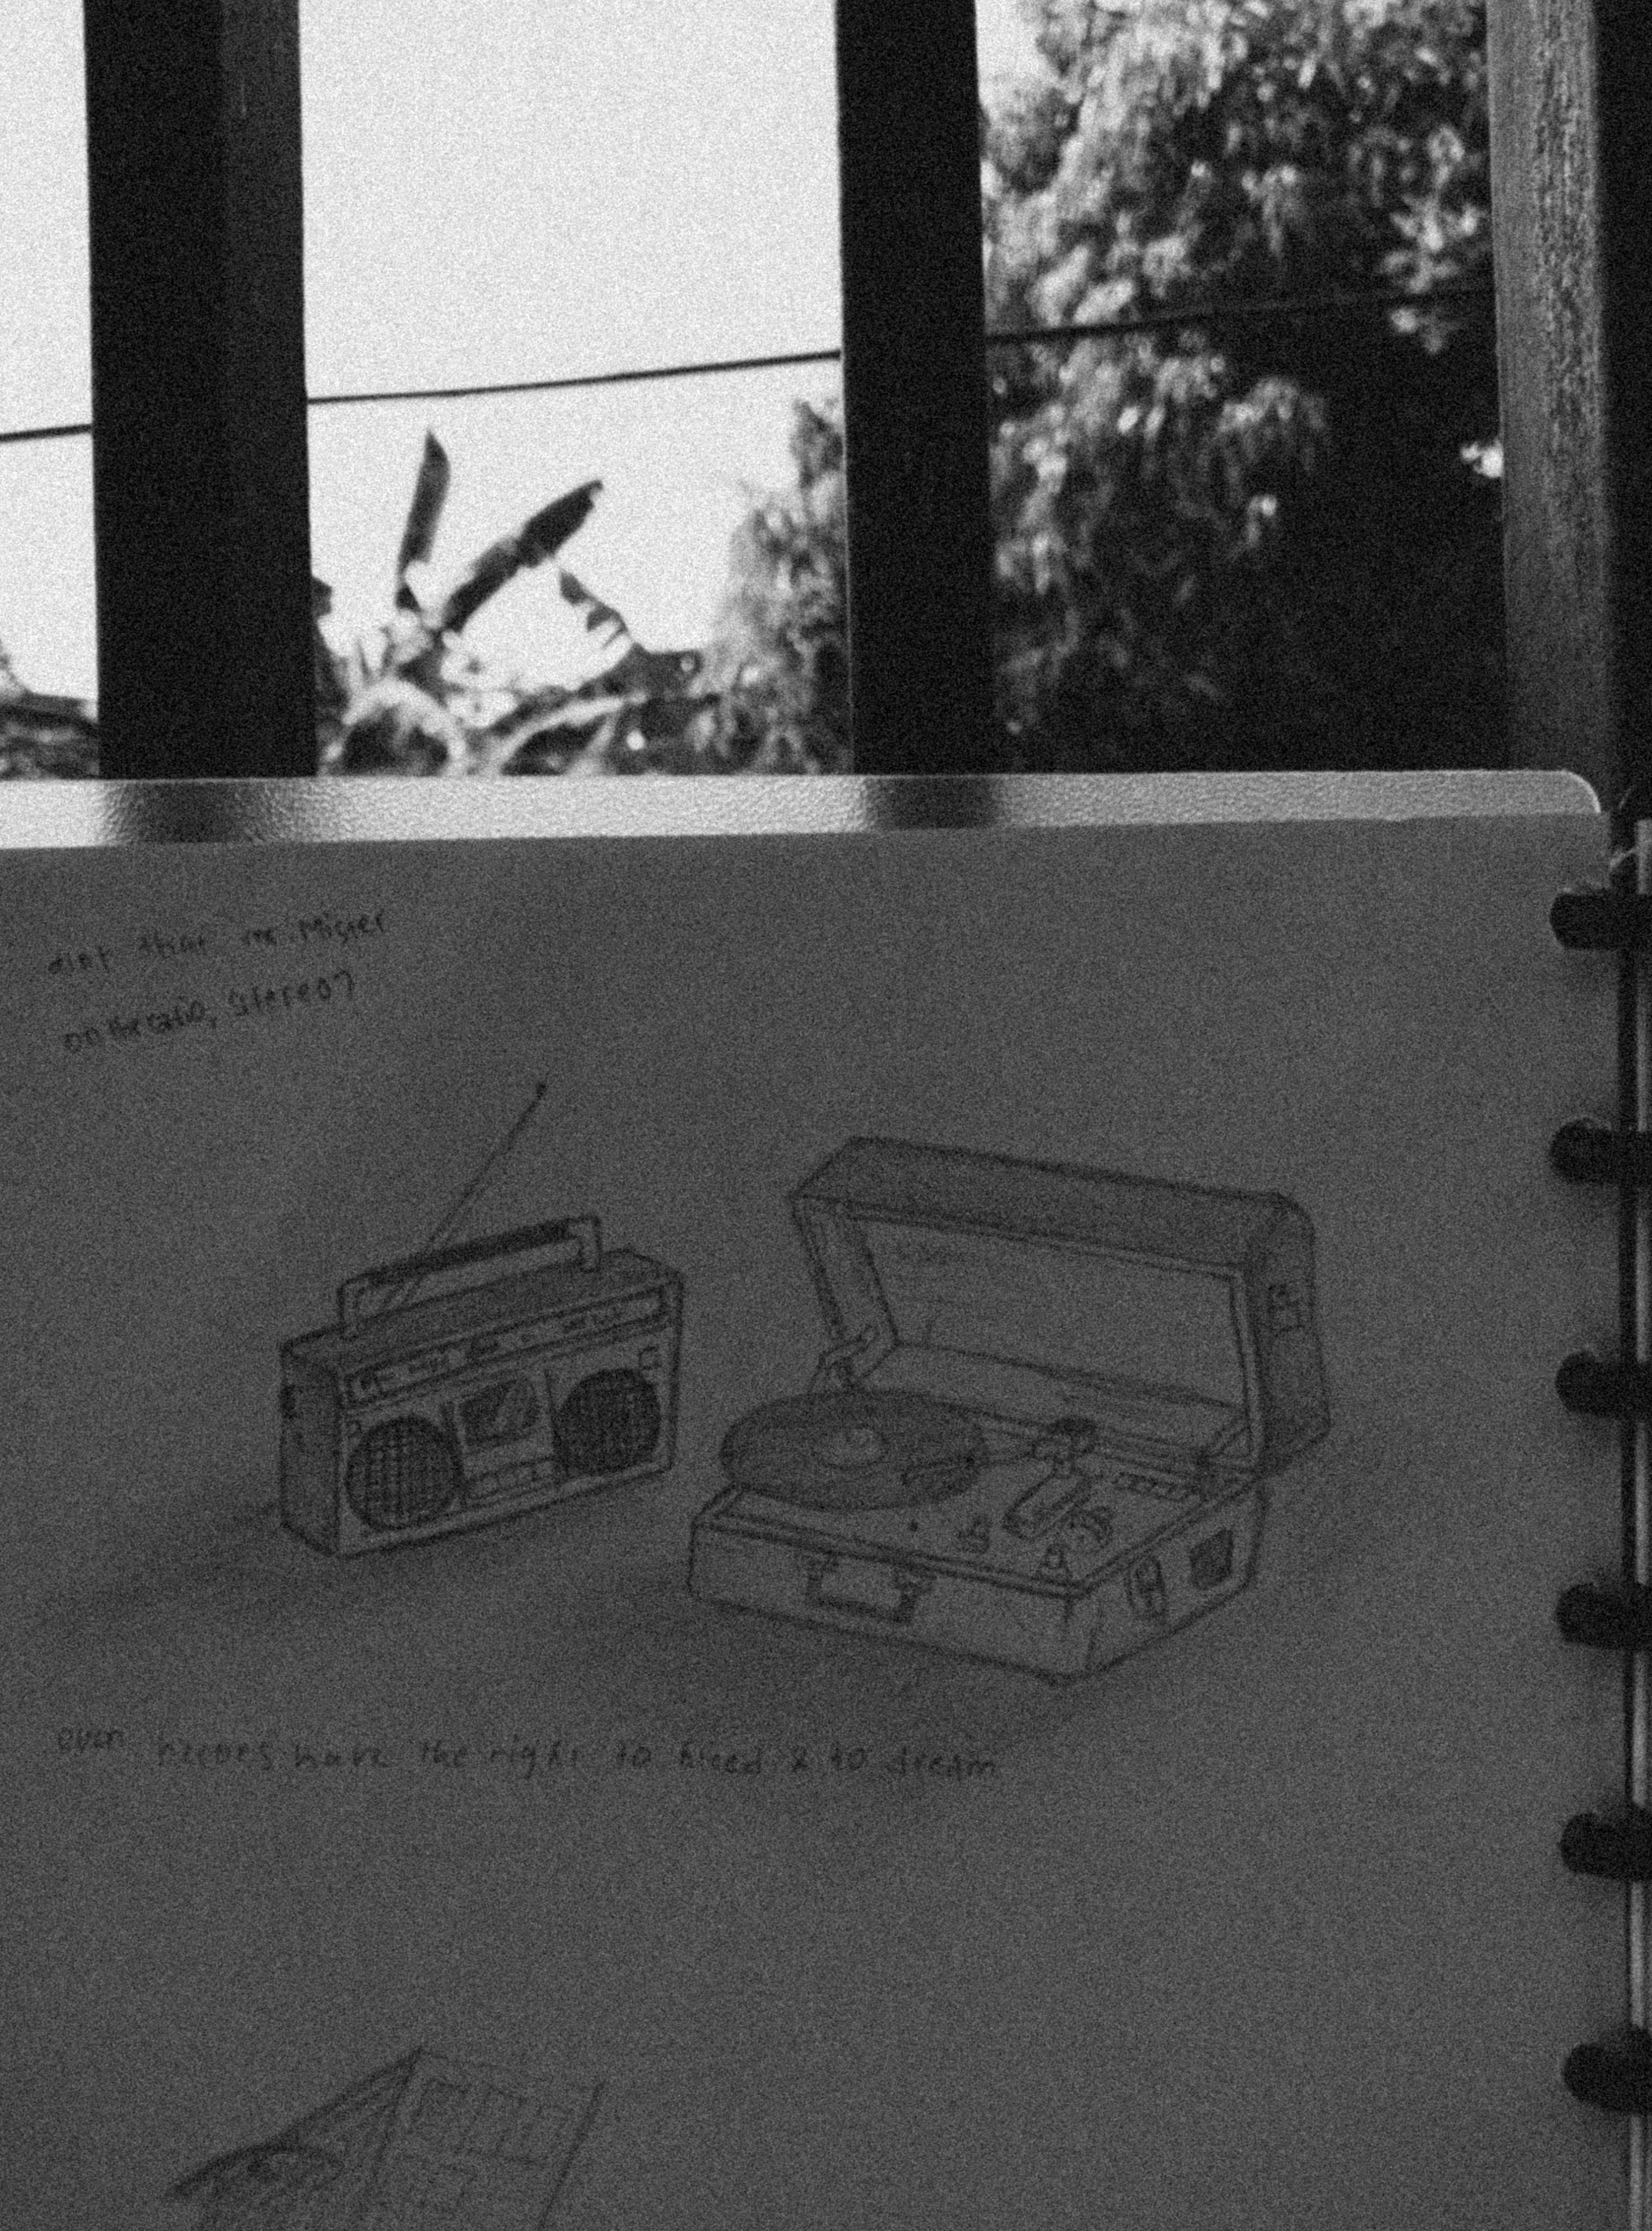 aint that Mister
on the radio, stereo?
even heroes have the right to bleed & to dream